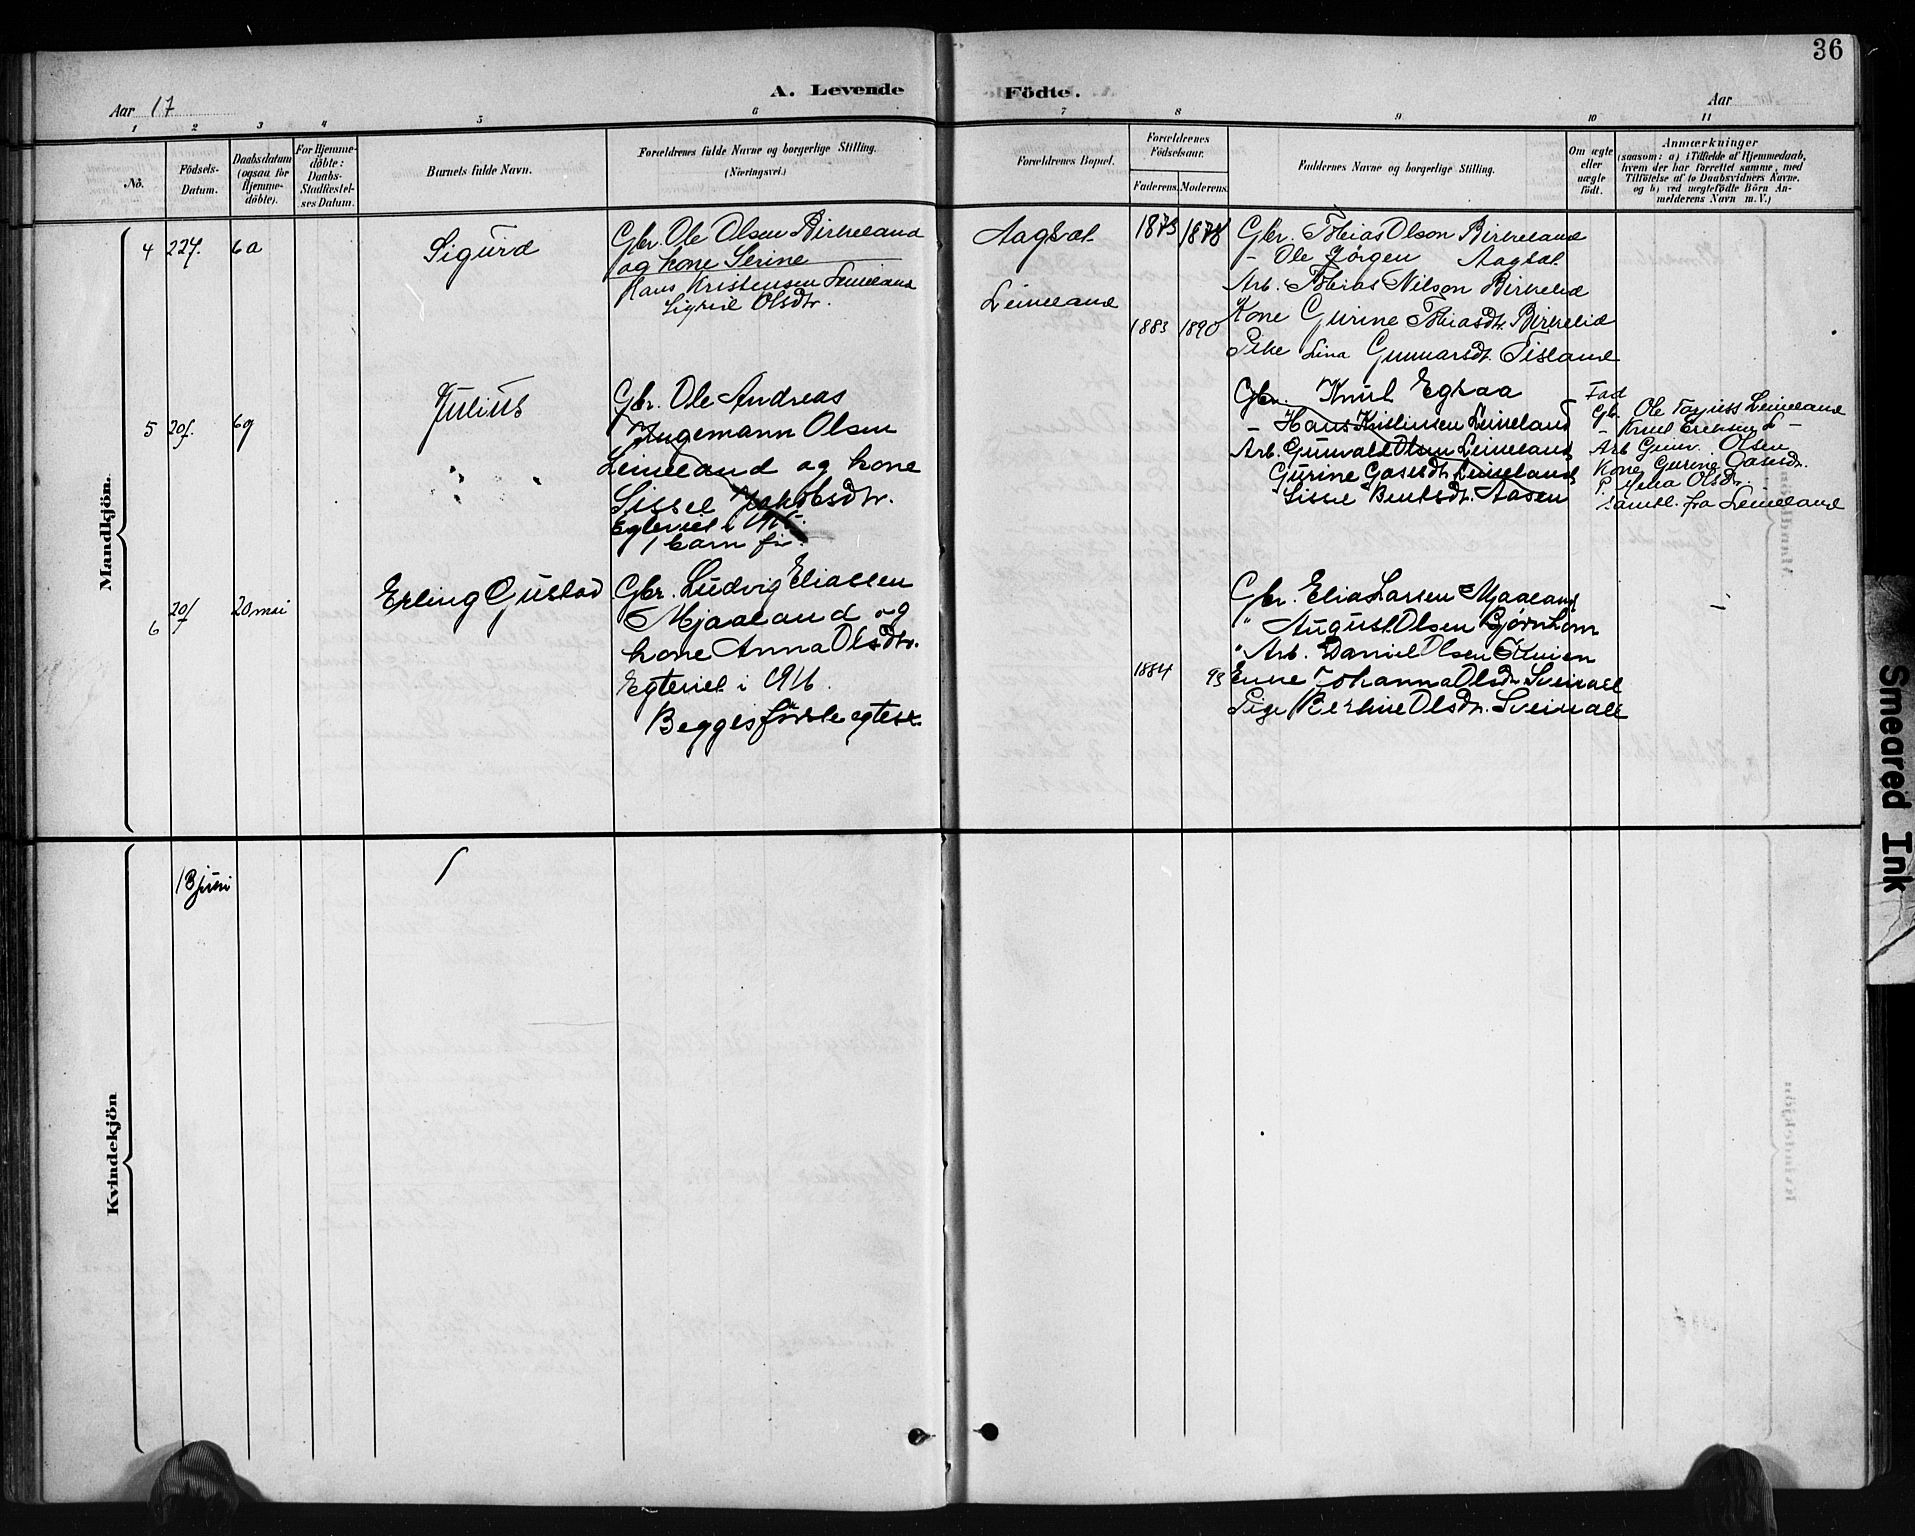 36
A. Levende
Födte.
Aar 17
Aar
1 2 3 4 5 6 7 8 9 10 11
No.
Födsels-
Datum.
Daabsdatum
(ogsaa for
Hjemme-
döbte).
For Hjemme-
döbte:
Daabs-
Stadfæstel-
ses Datum.
Barnets fulde Navn.
Forældrenes fulde Navne og borgerlige Stilling.
(Næringsvei.)
Forældrenes Bopæl.
Forældrenes
Födselsaar.
Faderens.
Moderens.
Faddernes Navne og borgerlige Stilling.
Om ægte
eller
uægte
födt.
Anmærkninger
(saasom: a) i Tilfælde af Hjemmedaab,
hvem der har forrettet samme, med
Tilföielse af to Daabsvidners Navne,
og b) ved uægtefödte Börn An-
melderens Navn m. V.)
Mandkjön.
4
6a
Sigurd
Gbr. Ole Olsen Birkeland
og kone Serine
Hans Kristensen Leineland
Sigrid Olsdtr.
Leineland
1873 1878
1883 1890
Gbr. Tobias Olson Birkeland
- Ole Jörgen
Arb. Tobias Nilson Birkelid
Kone Gurine Tobiasdt. Birkelid
Pike Lina Gunnarsdt.
5
Julius
Gbr. Ole Andreas
Ingemann Olsen
Leineland og kone
Sissel Jakobsdtr.
1 barn før.
Gbr. Knut Egsaa
- Hans Kristensen Leineland
Arb. Gunvald Olsen Leineland
Gurine Gasesdt. Leineland
Lisse Bentsdt. Aasen
Fad
Gb. Ole Leineland
- Knut Eriksen do -
Arb Olsen
Kone Gurine Gasesdt.
Olsdt.
samtl. fra Leineland
6
20/7
20 mai
Erling Gustav
Gbr. Ludvig Eliassen
Mjaaland og
kone Anna Olsdtr.
Egteviet i 1916.
Begges første egtesk.
1884 93
Gbr. Elias Larsen Mjaaland
" August Olsen Bjørnhom
" Arb. Daniel Olsen
Enke Johanna Olsdt. Sveinall
Pige Berthe Olsdt. Sveinall
Kvindekjön
13 juni
Smeared Ink